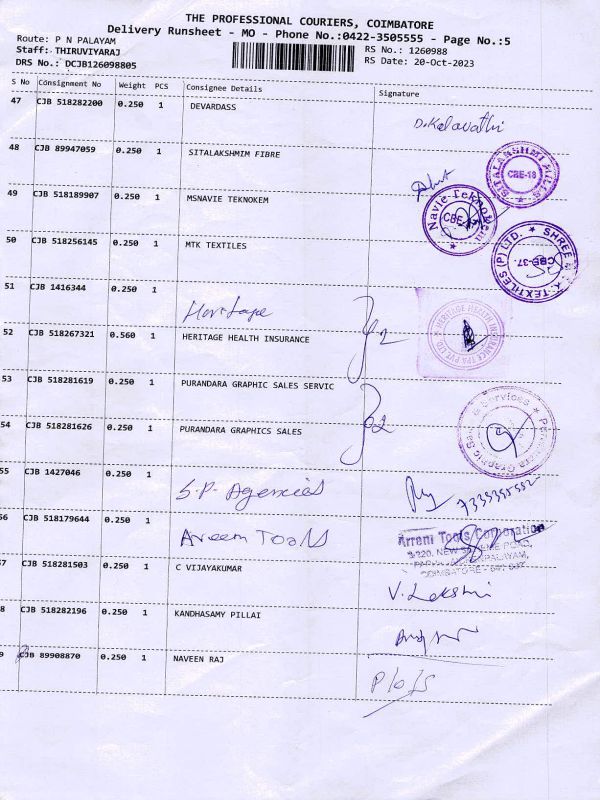 THE PROFESSIONAL COURIERS, COIMBATORE
Delivery Runsheet - MO - Phone No.:0422-3505555 - Page No.:5
Route: P N PALAYAM
Staff: THIRUVIYARAJ
RS No.: 1260988
DRS No.: DCJB126098805
RS Date: 20-Oct-2023
S No Consignment No Weight PCS Consignee Details Signature
47 CJB 518282200 0.250 1 DEVARDASS
D.Kalavathi
48 CJB 89947059 0.250 1 SITALAKSHMIM FIBRE
SITALAKSHMI MILLS CBE-18
49 CJB 518189907 0.250 1 MSNAVIE TEKNOKEM
Navie Teknokem CBE
50 CJB 518256145 0.250 1 MTK TEXTILES
SHREE TEXTILES (P) LTD. CBE-37.
51 CJB 1416344 0.250 1 Heritage
52 CJB 518267321 0.560 1 HERITAGE HEALTH INSURANCE
HERITAGE HEALTH INSURANCE TPA PVT. LTD.
53 CJB 518281619 0.250 1 PURANDARA GRAPHIC SALES SERVIC
54 CJB 518281626 0.250 1 PURANDARA GRAPHICS SALES
Purandara Graphic Sales & Services
55 CJB 1427046 0.250 1 S.P. Agencies
56 CJB 518179644 0.250 1 Areem Tools
Arreni Tools Corporation
3/220, NEW SCHEME ROAD,
COIMBATORE
57 CJB 518281503 0.250 1 C VIJAYAKUMAR
V. Lekshmi
8 CJB 518282196 0.250 1 KANDHASAMY PILLAI
9 CJB 89908870 0.250 1 NAVEEN RAJ